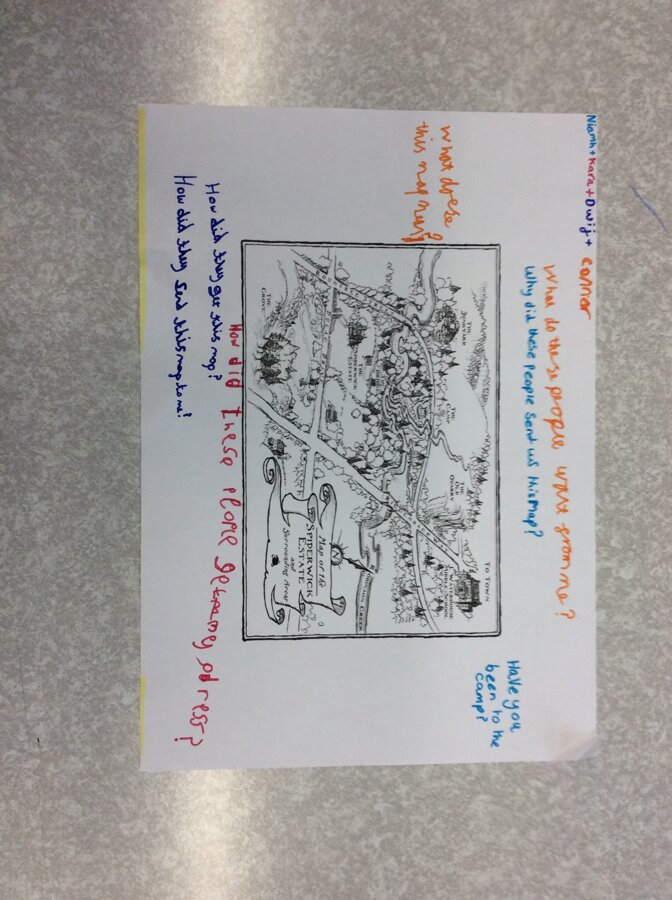 Niamh + Kara + Dwij +
connor
What do these people want from me?
Why did these people send us this map?
Have you
been to the
camp?
What does
this map
THE
JUNKYARD
THE
OLD
QUARRY
TO TOWN
WATERHOUSE
MIDDLE SCHOOL
THE
GROVE
Map of the
SPIDERWICK
ESTATE
and
Surrounding Areas
N
CREEK
How did they get this map?
How did they send this map to me?
How did these people get my adress?